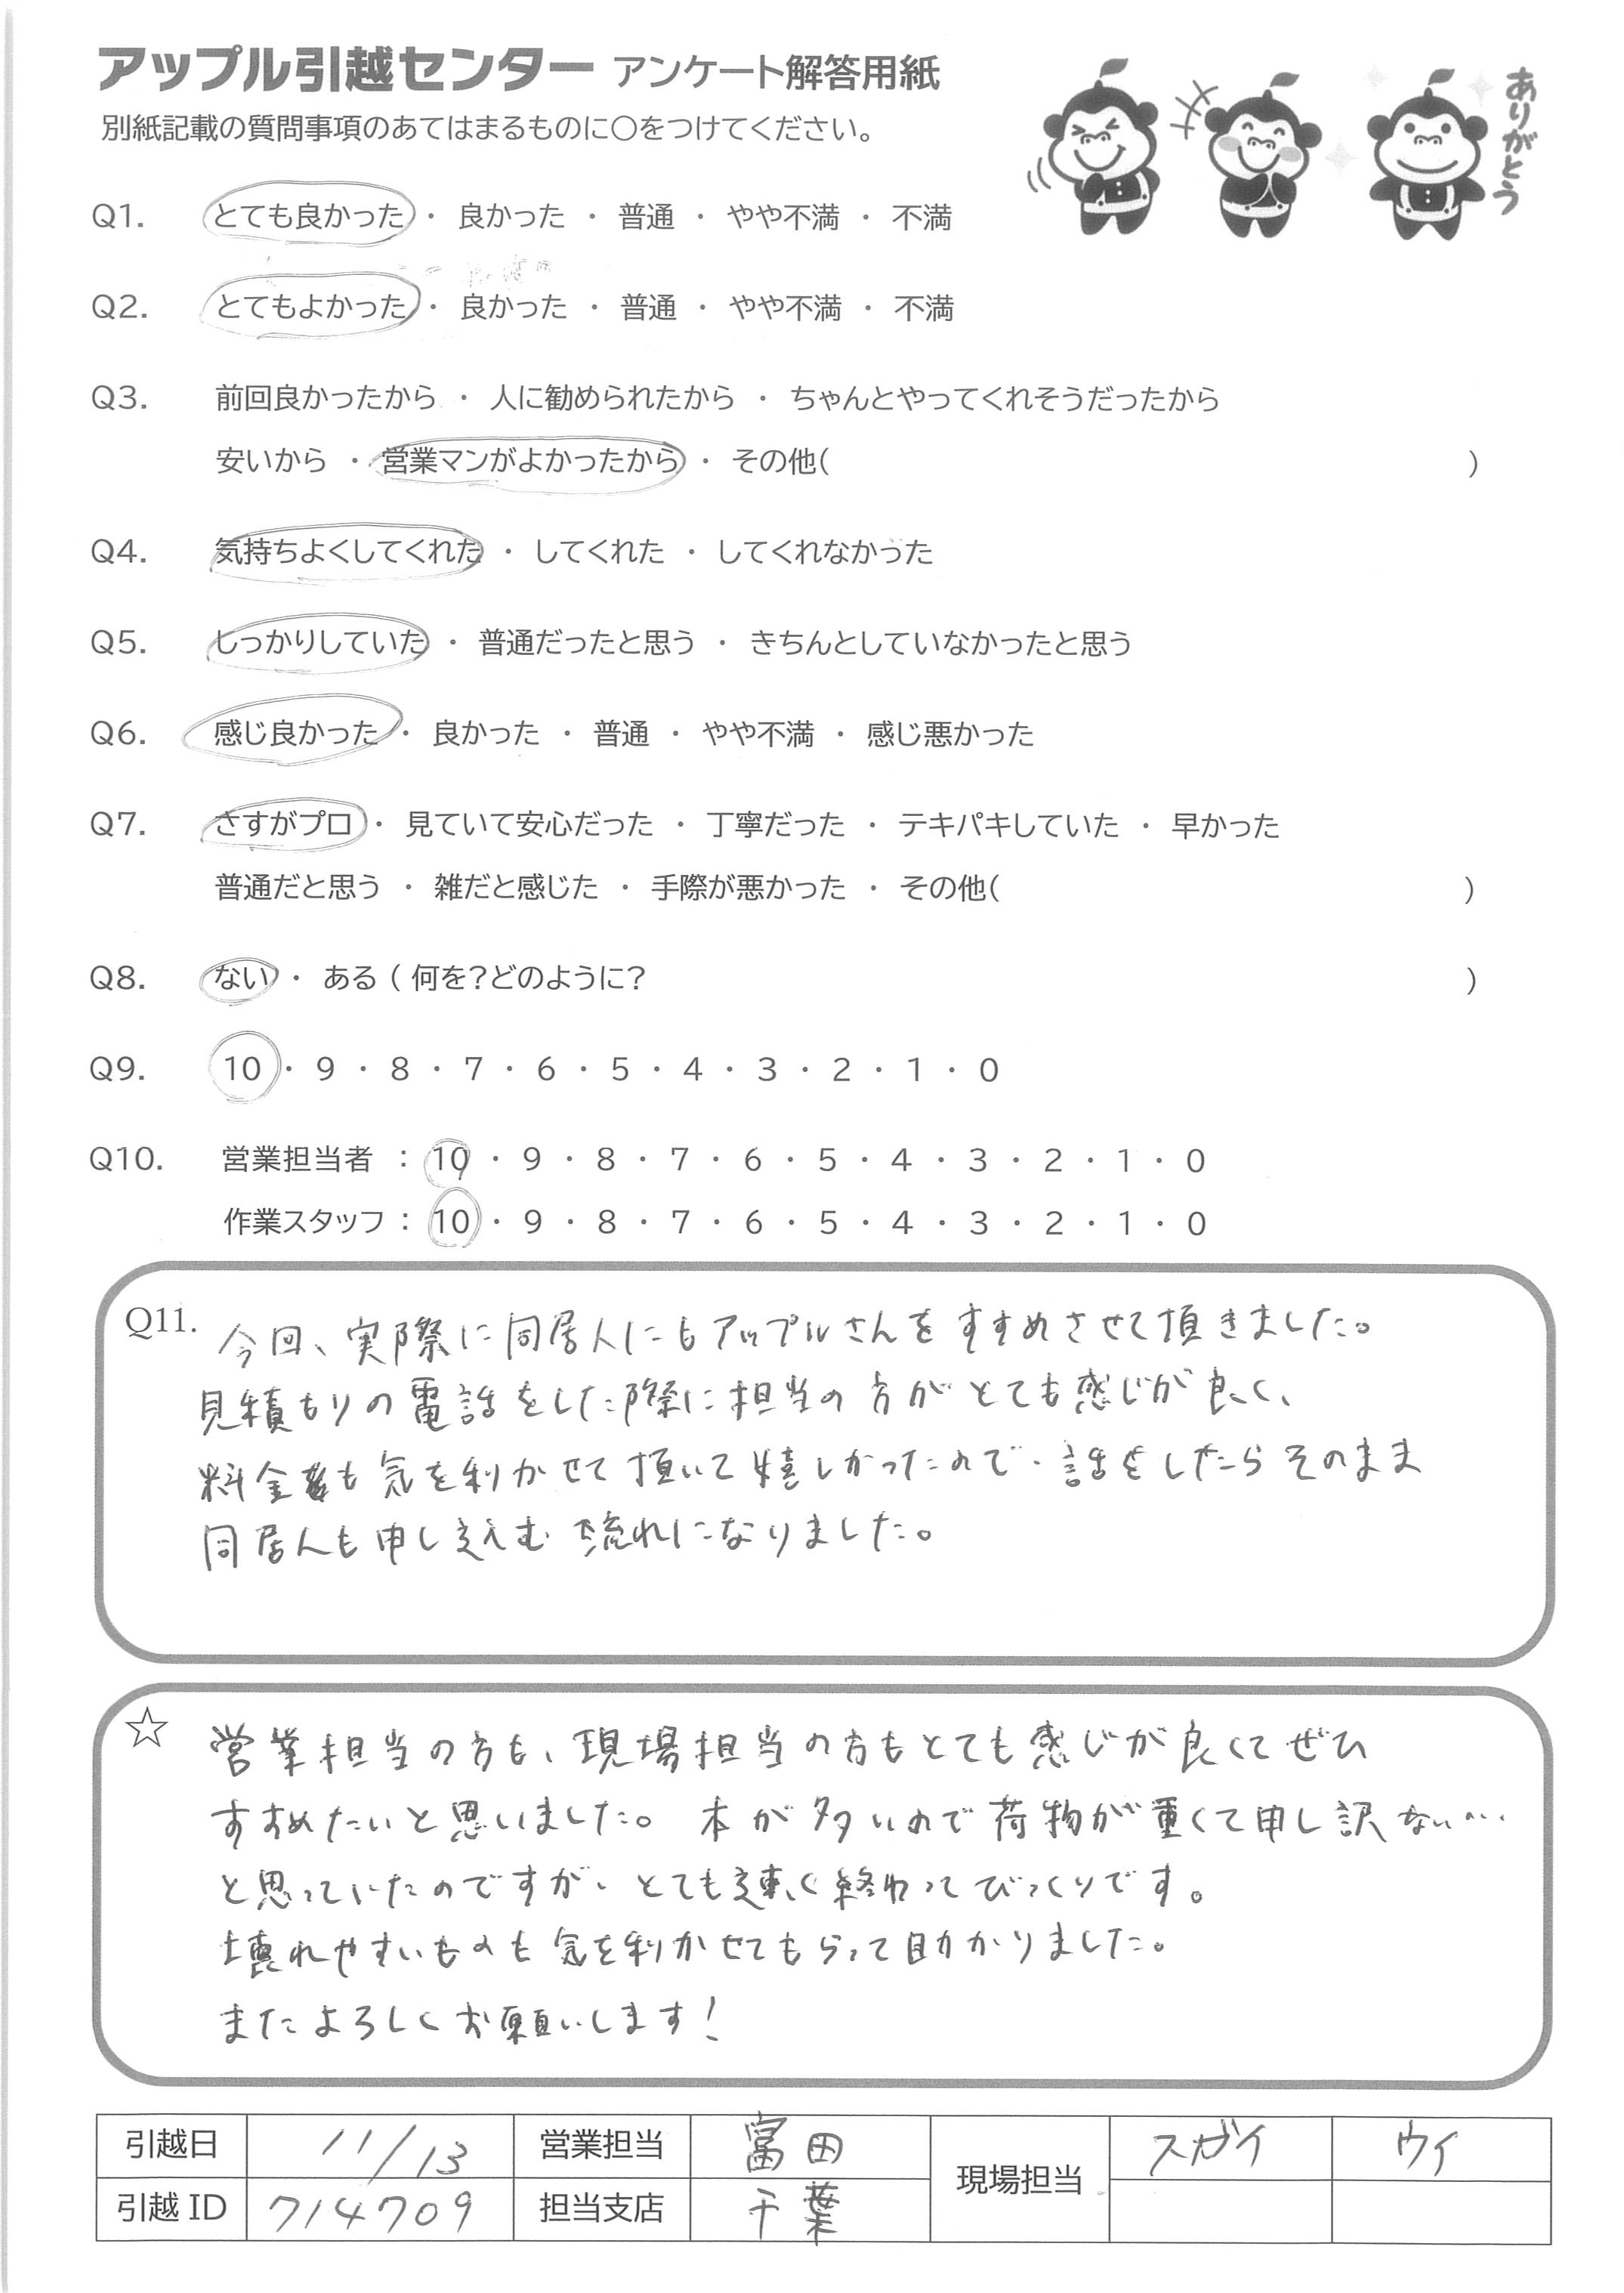 アップル引越センター アンケート解答用紙
ありがとう
別紙記載の質問事項のあてはまるものに○をつけてください。
Q1. とても良かった ・ 良かった ・ 普通 ・ やや不満 ・ 不満
Q2. とてもよかった ・ 良かった ・ 普通 ・ やや不満 ・ 不満
Q3. 前回良かったから ・ 人に勧められたから ・ ちゃんとやってくれそうだったから
安いから ・ 営業マンがよかったから ・ その他( )
Q4. 気持ちよくしてくれた ・ してくれた ・ してくれなかった
Q5. しっかりしていた ・ 普通だったと思う ・ きちんとしていなかったと思う
Q6. 感じ良かった ・ 良かった ・ 普通 ・ やや不満 ・ 感じ悪かった
Q7. さすがプロ ・ 見ていて安心だった ・ 丁寧だった ・ テキパキしていた ・ 早かった
普通だと思う ・ 雑だと感じた ・ 手際が悪かった ・ その他( )
Q8. ない ・ ある ( 何を?どのように? )
Q9. 10 ・ 9 ・ 8 ・ 7 ・ 6 ・ 5 ・ 4 ・ 3 ・ 2 ・ 1 ・ 0
Q10. 営業担当者 : 10 ・ 9 ・ 8 ・ 7 ・ 6 ・ 5 ・ 4 ・ 3 ・ 2 ・ 1 ・ 0
作業スタッフ : 10 ・ 9 ・ 8 ・ 7 ・ 6 ・ 5 ・ 4 ・ 3 ・ 2 ・ 1 ・ 0
Q11. 今回、実際に同居人にもアップルさんをすすめさせて頂きました。
見積もりの電話をした際に担当の方がとても感じが良く、
料金も気を利かせて頂いて嬉しかったので、話をしたらそのまま
同居人も申し込む流れになりました。
☆ 営業担当の方も、現場担当の方もとても感じが良くてぜひ
すすめたいと思いました。本が多いので荷物が重くて申し訳ない…
と思っていたのですが、とても速く終わってびっくりです。
壊れやすいものも気を利かせてもらって助かりました。
またよろしくお願いします!
引越日 11/13 営業担当 冨田 現場担当 スガイ ウイ
引越ID 714709 担当支店 千葉